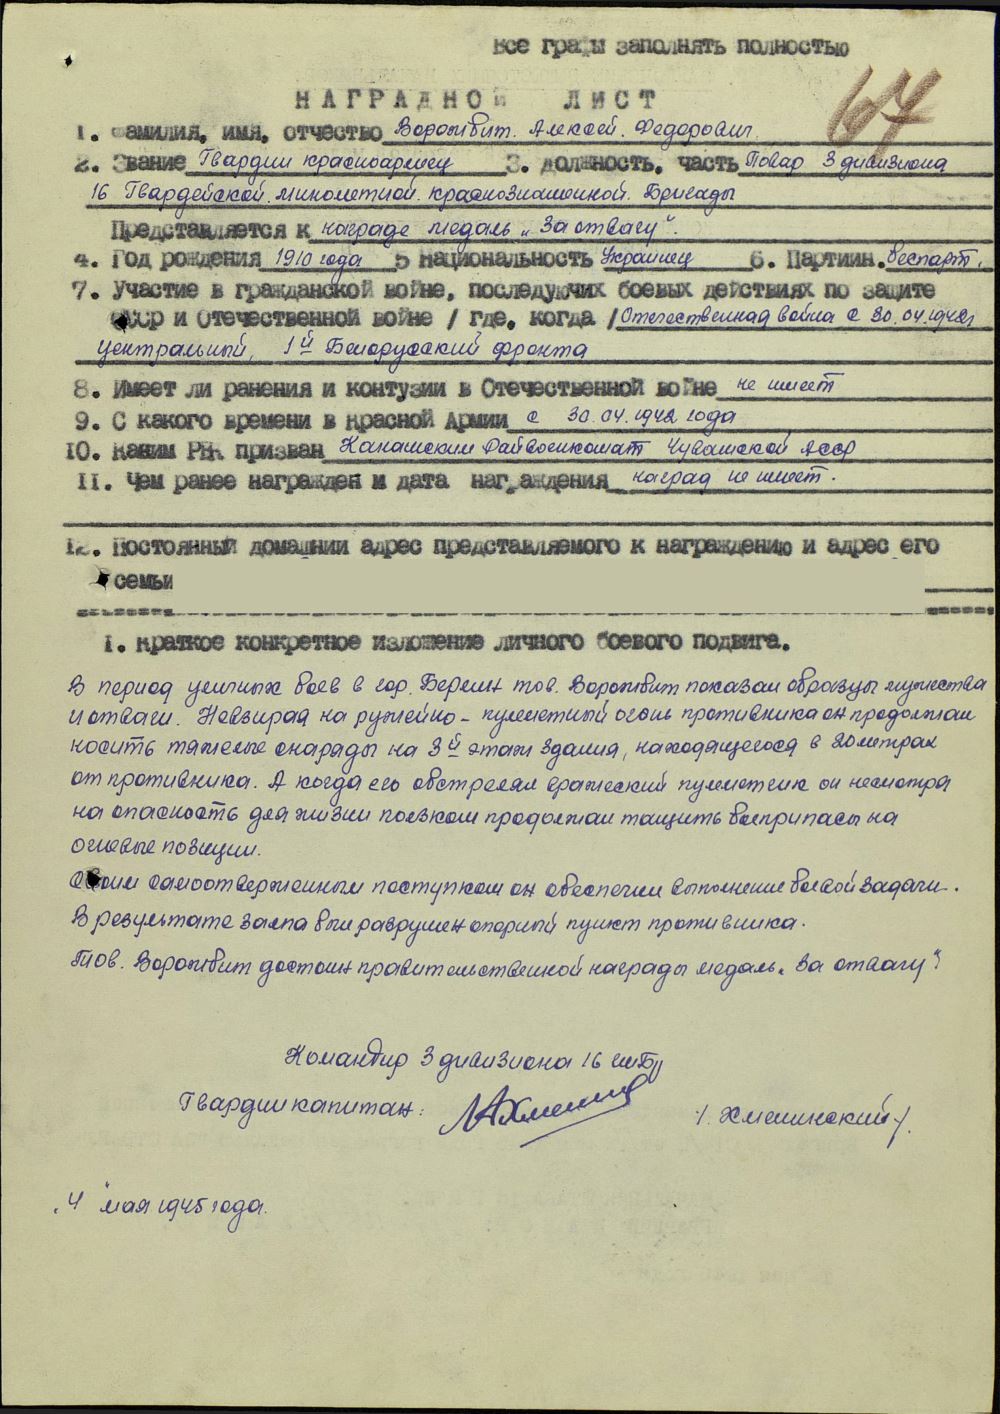 Все графы заполнять полностью
67
НАГРАДНОЙ ЛИСТ
1. Фамилия, имя, отчество Ворожбит. Алексей. Федорович.
2. Звание Гвардии красноармеец 3. Должность, часть Повар 3 дивизиона
16 Гвардейской. минометной. краснознаменной. Бригады
Представляется к награде медаль „За отвагу“.
4. Год рождения 1910 года 5 Национальность Украинец 6. Партийн. беспарт.
7. Участие в гражданской войне, последующих боевых действиях по защите
СССР и Отечественной войне / где, когда / Отечественная война с 30.04.1942г
центральный, 1й Белорусский фронта
8. Имеет ли ранения и контузии в Отечественной войне не имеет
9. С какого времени в Красной Армии с 30.04.1942 года
10. Каким РВК призван Канашским Райвоенкомат Чувашской АССР
11. Чем ранее награжден и дата награждения наград не имеет.
12. Постоянный домашний адрес представляемого к награждению и адрес его
семьи
1. Краткое конкретное изложение личного боевого подвига.
В период уличных боев в гор. Берлин тов. Ворожбит показал образцы мужества
и отваги. Невзирая на ружейно-пулеметный огонь противника он продолжал
носить тяжелые снаряды на 3й этаж здания, находящегося в 20 метрах
от противника. А когда его обстрелял вражеский пулеметчик он несмотря
на опасность для жизни ползком продолжал тащить боеприпасы на
огневые позиции.
Своим самоотверженным поступком он обеспечил выполнение боевой задачи.
В результате залпа был разрушен опорный пункт противника.
Тов. Ворожбит достоин правительственной награды медаль „За отвагу“
Командир 3 дивизиона 16 гмБр
Гвардии капитан:
/. Хмелинский /.
„4“ мая 1945 года.